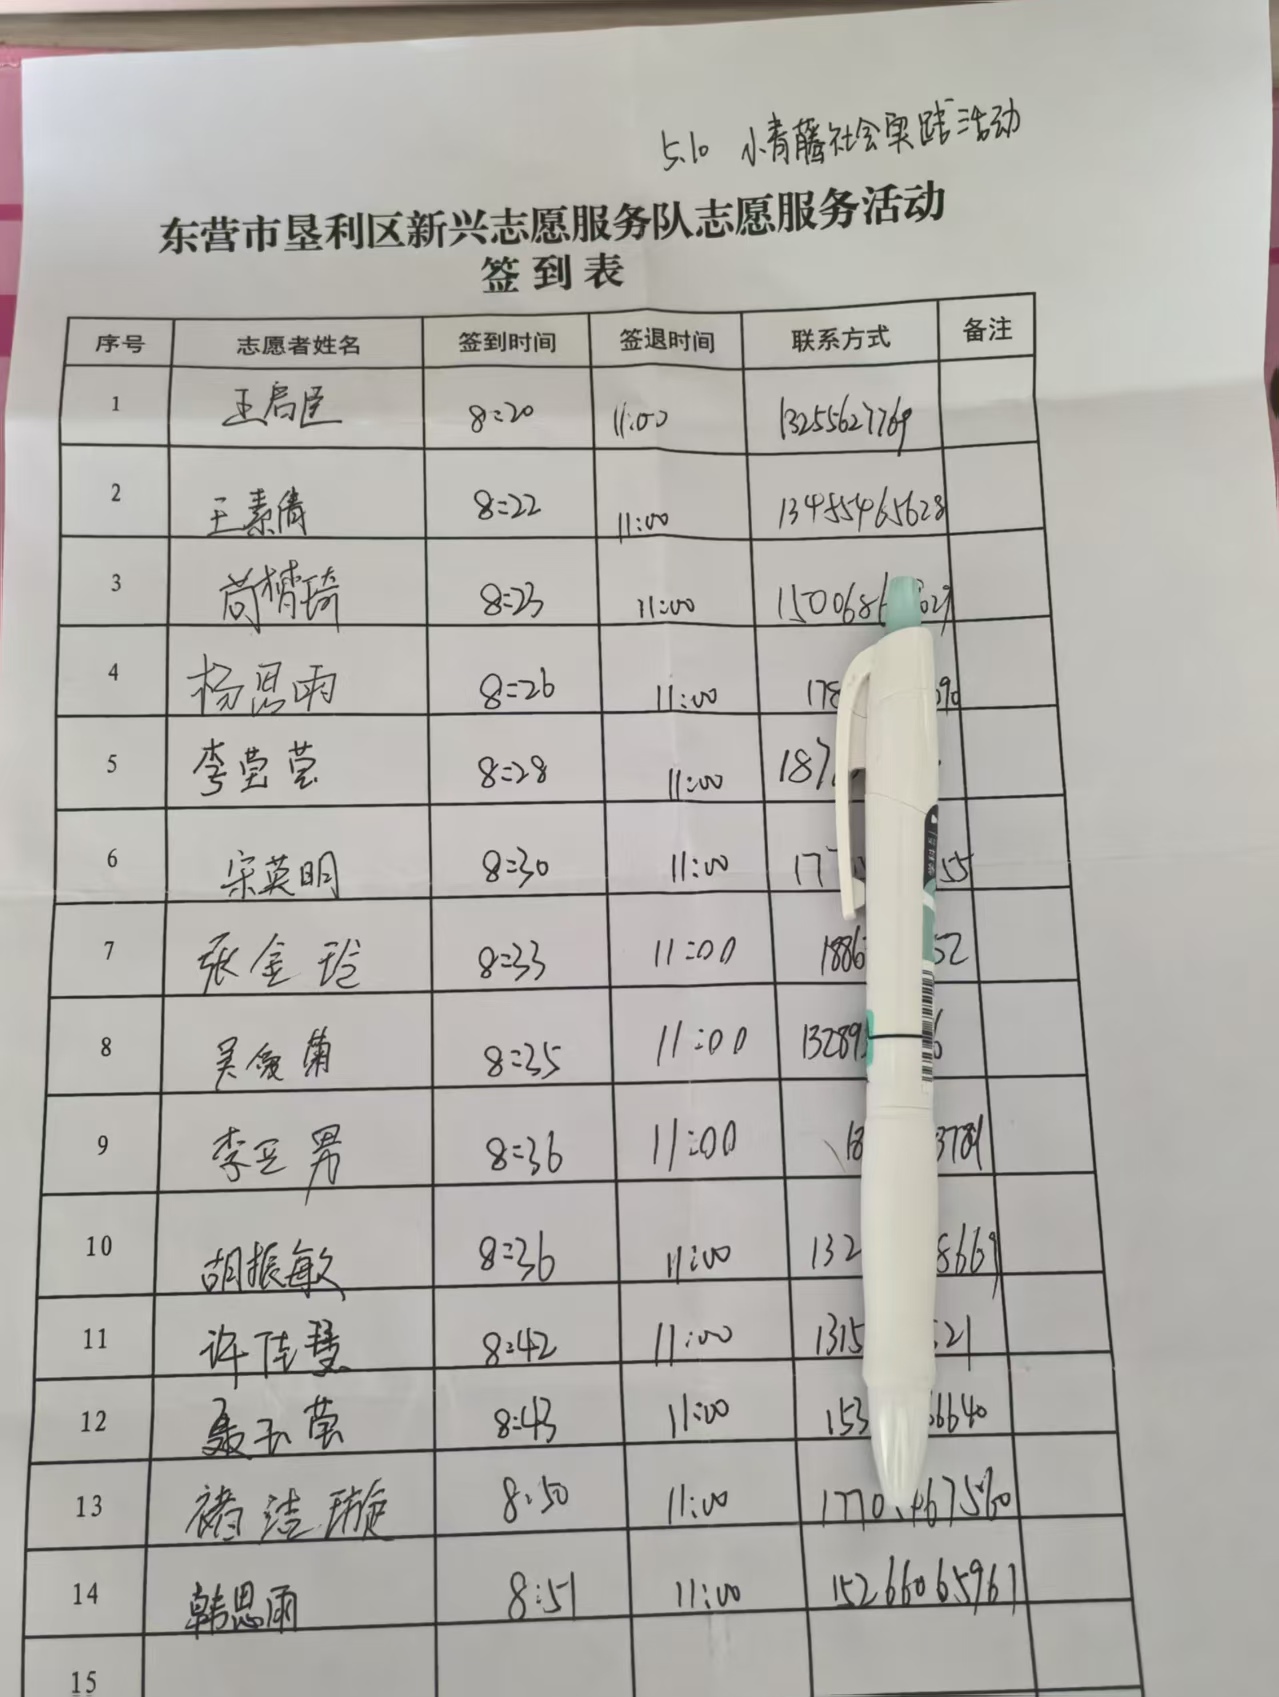 5.10 小青藤社会实践活动
东营市垦利区新兴志愿服务队志愿服务活动
签到表
序号 志愿者姓名 签到时间 签退时间 联系方式 备注
1 王启臣 8:20 11:00 13255627769
2 王素倩 8:22 11:00 13455465628
3 8:23 11:00 1500686 629
4 杨思雨 8:26 11:00 178 090
5 李莹莹 8:28 11:00 187
6 宋英明 8:30 11:00 177 55
7 张金玲 8:33 11:00 1886 52
8 吴俊菊 8:35 11:00 13289 6
9 李亚男 8:36 11:00 18 3789
10 胡振敏 8:36 11:00 132 8669
11 许佳慧 8:42 11:00 1315 521
12 聂玉莹 8:43 11:00 153 66640
13 褚洁璇 8:50 11:00 1770 467560
14 韩思雨 8:51 11:00 15266065961
15